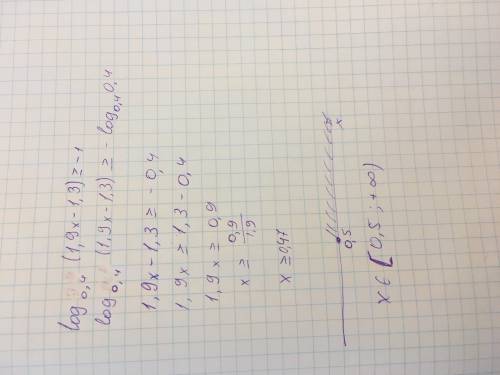 log₀,₄ (1,9x-1,3) ≥ -1
log₀,₄ (1,9x-1,3) ≥ - log₀,₄ 0,4
1,9x-1,3 ≥ - 0,4
1,9x ≥ 1,3 - 0,4
1,9x ≥ 0,9
x ≥ 0,9/1,9
x ≥ 0,47
0,5 x
x ∈ [0,5 ; +∞)